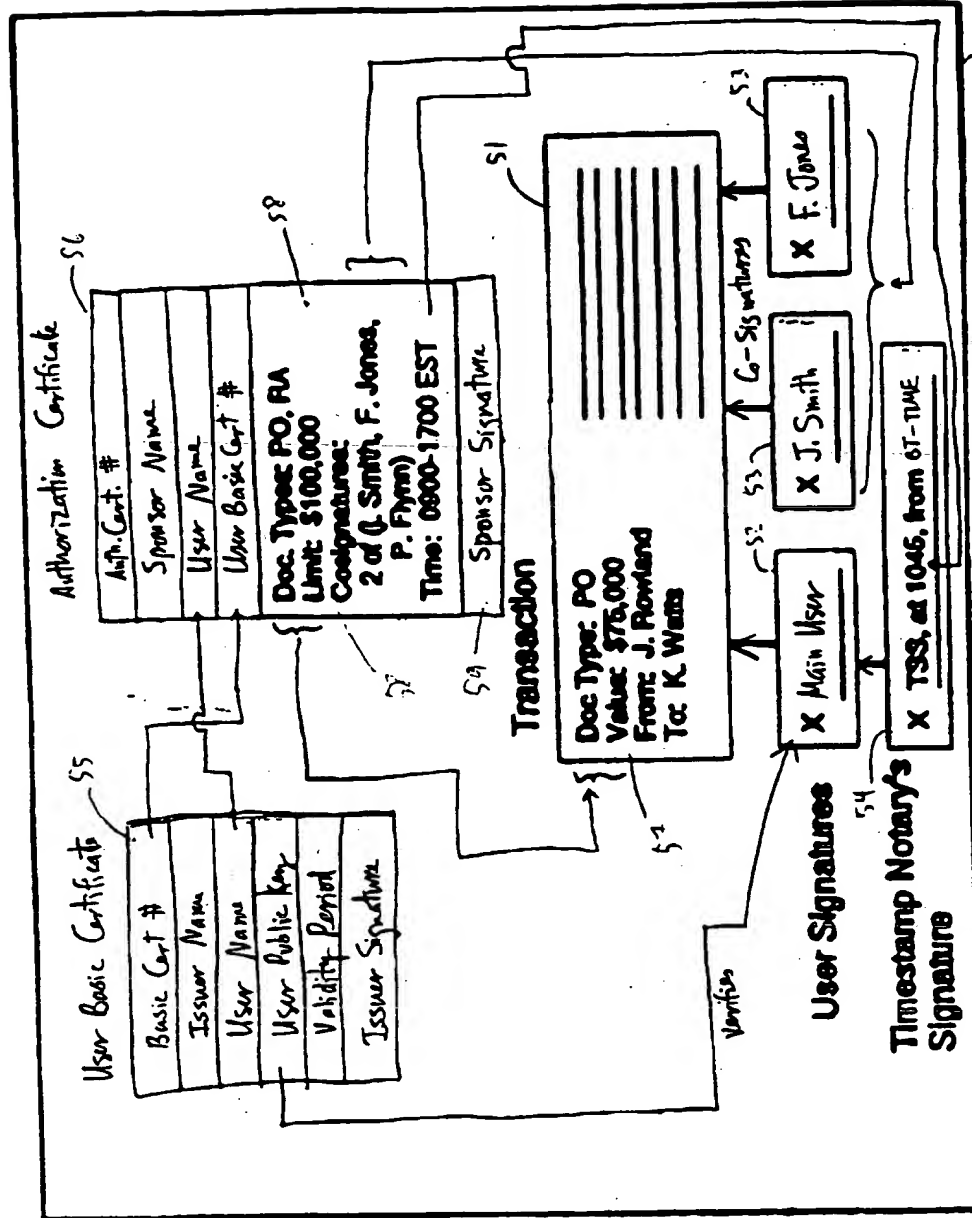 User Basic Certificate
55
Basic Cert #
Issuer Name
User Name
User Public Key
Validity Period
Issuer Signature
Authorization Certificate
56
Auth. Cert. #
Sponsor Name
User Name
User Basic Cert #
Doc. Types: PO, RA
Limit: $100,000
Cosignatures:
2 of (J. Smith, F. Jones,
P. Flynn)
Time: 0900-1700 EST
Sponsor Signature
58
59
Transaction
51
Doc Type: PO
Value: $75,000
From: J. Rowland
To: K. Watts
57
Verifies
Co-Signatures
52
X Main User
53
X J. Smith
53
X F. Jones
User Signatures
54
X TSS, at 1045, from
Timestamp Notary's
Signature